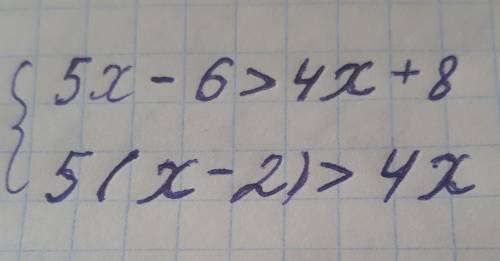 5x - 6 > 4x + 8
5(x - 2) > 4x